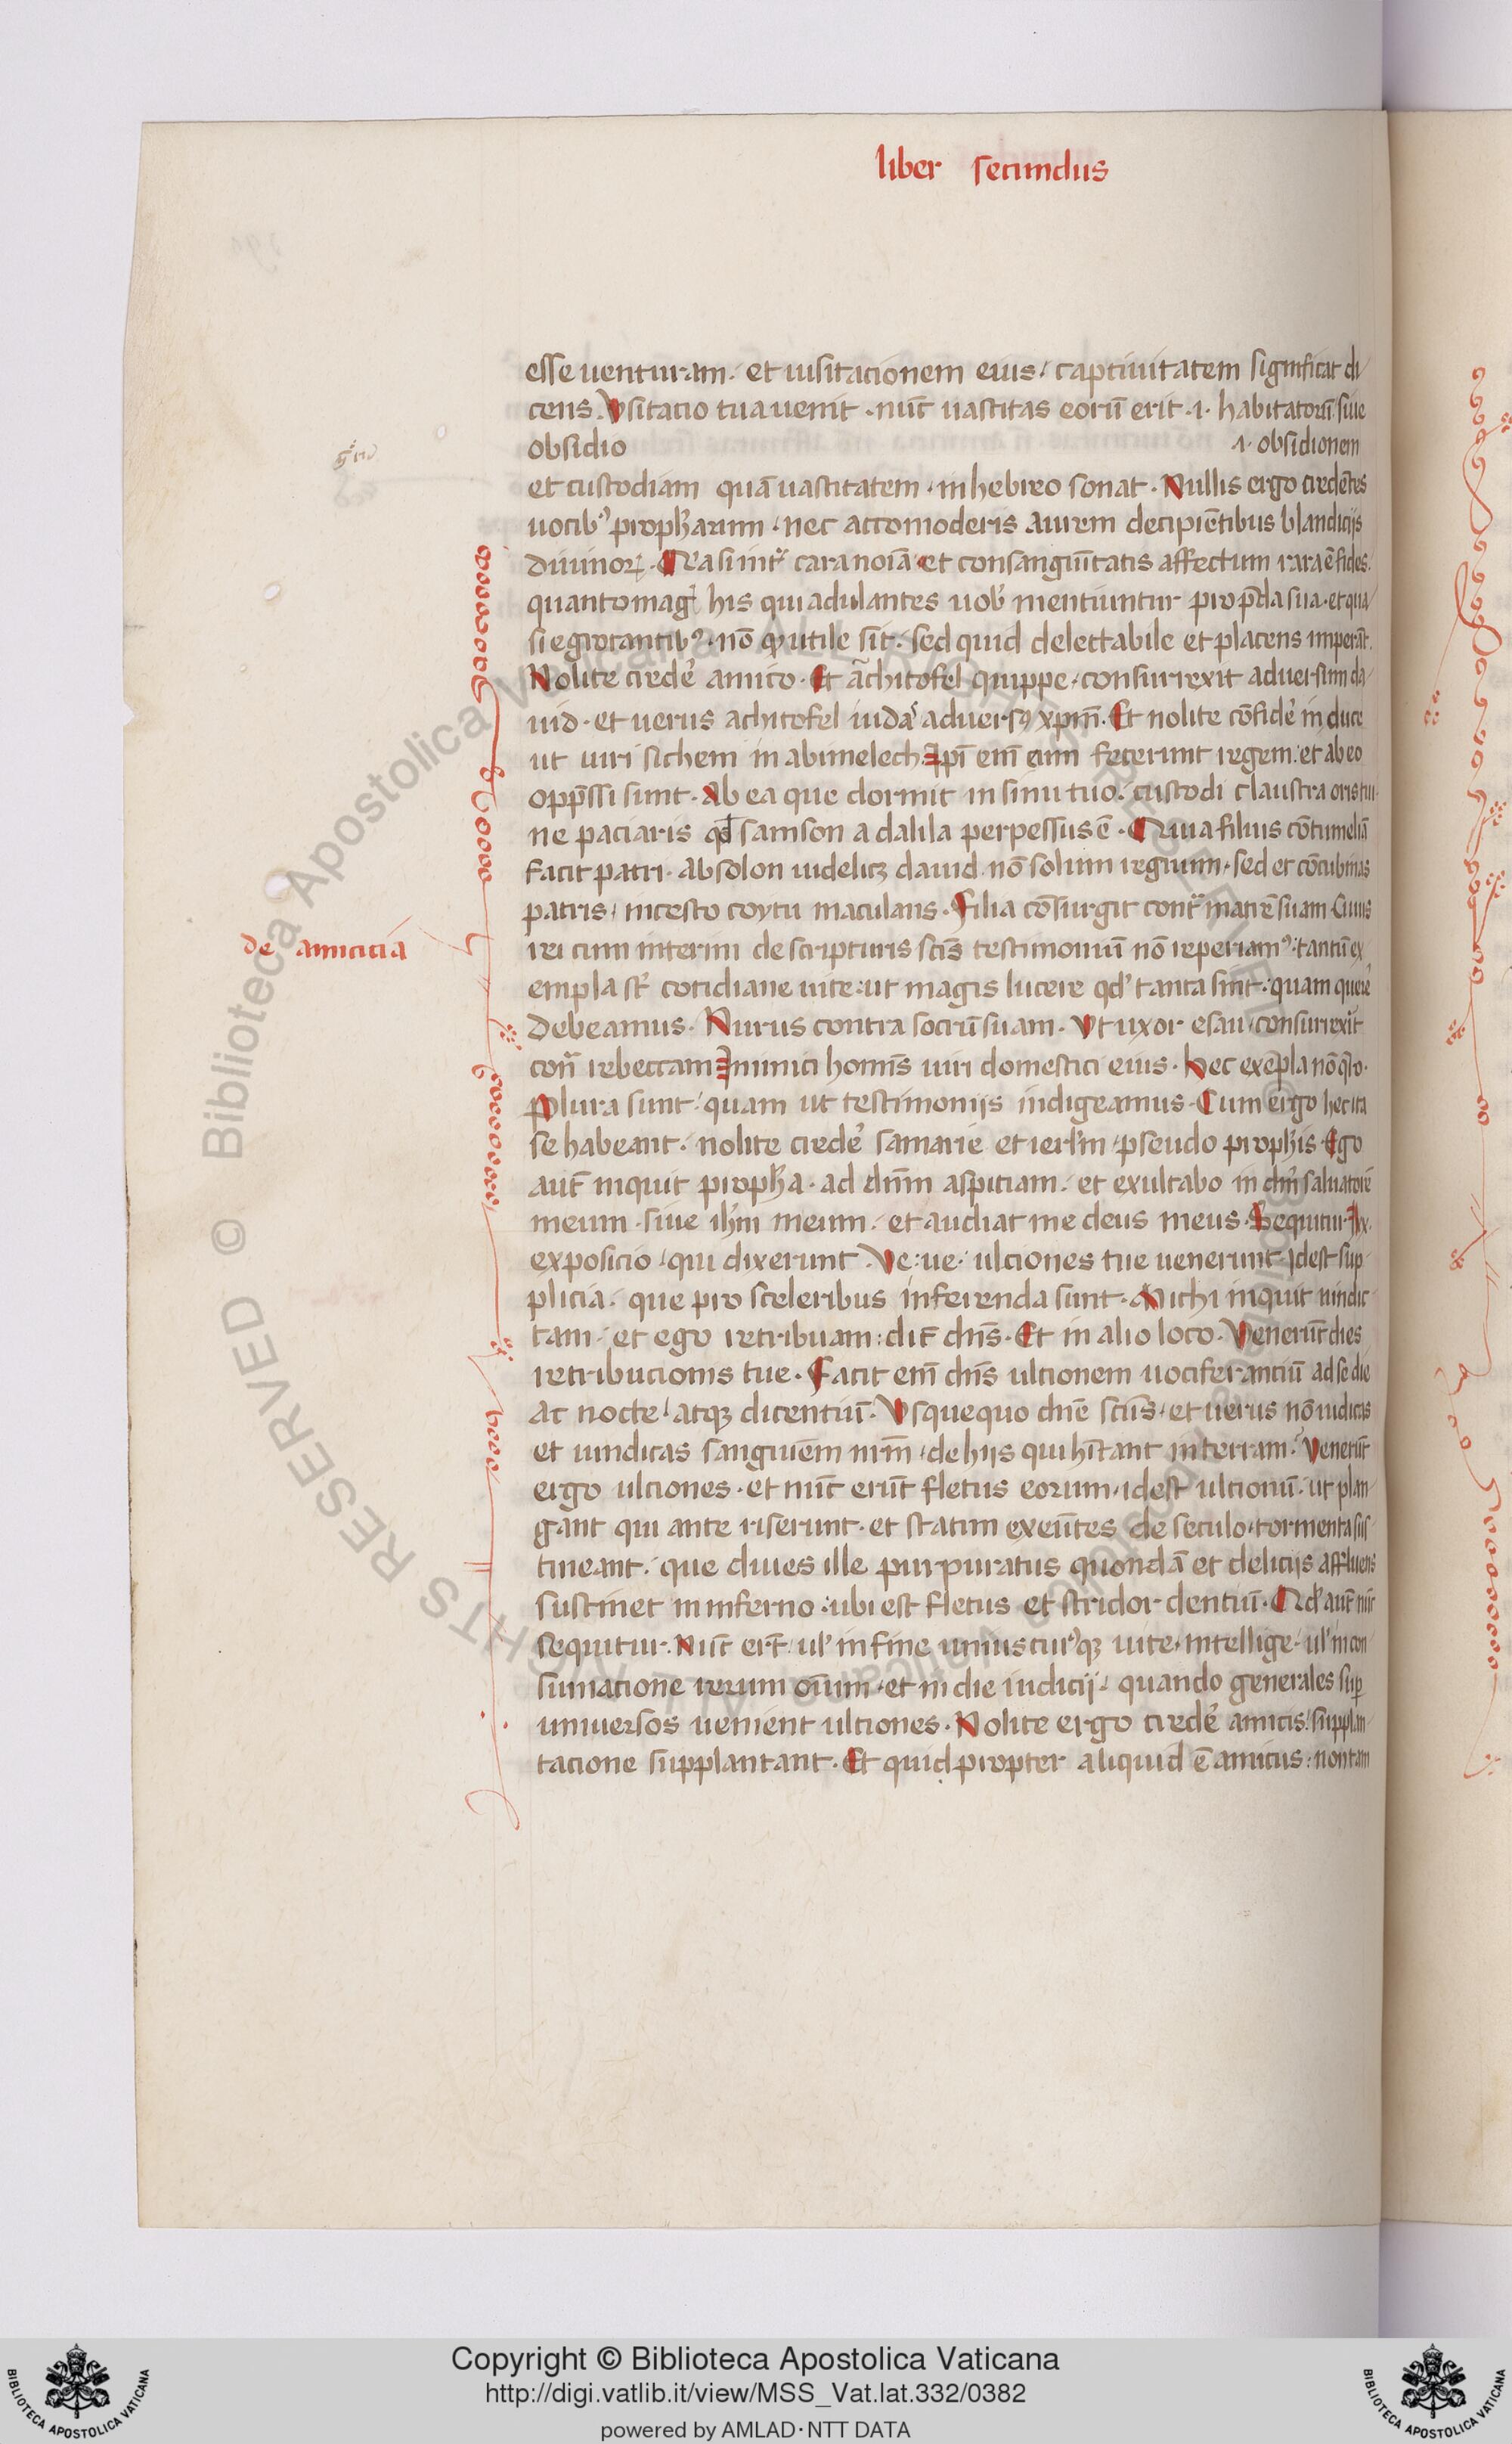 liber secundus
esse uenturam. et uisitacionem eius. captiuitatem significat di
cens. Visitacio tua uenit. nūc uastitas eorū erit. i. habitatorū. siue
obsidio i. obsidionem
et custodiam quā uastitatem. in hebreo sonat. Nullis ergo credētes
uocibꝰ prophetarum. nec accomoderis aurem decipiētibus blandicijs
diuinoꝝ. Na si intͬ cara noīa et consanguītatis affectum rara ē fides.
quanto mag his qui adulantes uobˀ mentiuntur pro p̄da sua. et qua
si egrotantibꝰ. nō qͩ utile sīt. sed quid delectabile et placens imperāt.
Nolite credeˀ amico. Et āchitofel quippe. consurrexit aduersum da
uid. et uerus achitofel iudas aduersꝰ xpm̄. Et nolite cōfideˀ in duce
ut uiri sichem in abimelech. Ipī em̄ eum fecerunt regem. et ab eo
opp̄ssi sunt. Ab ea que dormit in sinu tuo. custodi claustra oris tui
ne paciaris qd samson a dalila perpessus ē. Quia filius cōtumeliā
facit patri. absolon uidelicꝫ dauid. nō solum regium. sed et cōcubinas
patris. incesto coytu maculans. Filia cōsurgit contͣ matrē suam. Cuius
de amicicia
rei cum interim de scripturis scīs testimoniū nō reperiamꝰ. tantū ex
empla sͭ cotidiane uite. ut magis lucere qdˀ tanta sint. quam querēˀ
debeamus. Nurus contra socrū suam. Vt uxor esau. consurrexīt
conͣ rebeccam. Inimici homīs uiri domestici eius. Hec exēpla nō qͦro.
Plura sunt. quam ut testimonijs indigeamus. Cum ergo hec ita
se habeant. nolite credeˀ samarie et ierlˀm. pseudo prophīs. Ego
aut̄ inquit propha. ad dn̄m aspiciam. et exultabo in dn̄o saluatorē
meum. siue ih̄m meum. et audiat me deus meus. Sequitur lxx.
exposicio. qui dixerunt. Ve. ue. ulciones tue uenerunt. idest sup
plicia. que pro sceleribus inferenda sunt. Michi inquit uindic
tam. et ego retribuam. dic̄ dn̄s. Et in alio loco. Venerūt dies
retribucionis tue. Facit em̄ dn̄s ulcionem uociferanciū ad se die
ac nocte. atqꝫ dicentiū. Vsquequo dn̄e scūs. et uerus nō iudicas
et uindicas sanguiēm nrm̄. de hijs qui hītant in terram. Venerūt
ergo ulciones. et nūc erūt fletus eorum. idest ulcionū. ut plan
gant qui ante riserunt. et statim exeūtes de seculo. tormenta sus
tineant. que diues ille purpuratus quondā et delicijs affluens
sustinet in inferno. ubi est fletus et stridor dentiū. Qdˀ aut̄ nūc
sequitur. Nūc ert̄. ulˀ in fine uniuscuiꝰqꝫ uite. intellige. ulˀ in con
sumacione rerum oīum. et in die iudicij. quando generales suꝑ
uniuersos uenient ulciones. Nolite ergo credeˀ amicis. supplan
tacione supplantant. Et quid propter aliquid ē amicus. non tam
Copyright © Biblioteca Apostolica Vaticana
http://digi.vatlib.it/view/MSS_Vat.lat.332/0382
powered by AMLAD·NTT DATA